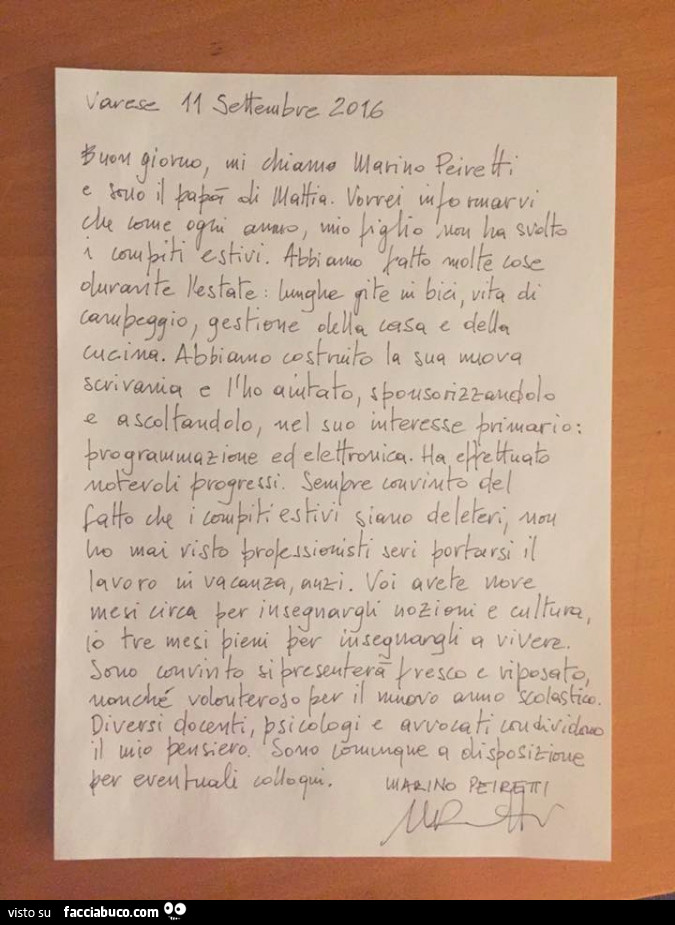 Varese 11 Settembre 2016
Buon giorno, mi chiamo Marino Peiretti
e sono il papà di Mattia. Vorrei informarvi
che come ogni anno, mio figlio non ha svolto
i compiti estivi. Abbiamo fatto molte cose
durante l'estate: lunghe gite in bici, vita di
campeggio, gestione della casa e della
cucina. Abbiamo costruito la sua nuova
scrivania e l'ho aiutato, sponsorizzandolo
e ascoltandolo, nel suo interesse primario:
programmazione ed elettronica. Ha effettuato
notevoli progressi. Sempre convinto del
fatto che i compiti estivi siano deleteri, non
ho mai visto professionisti seri portarsi il
lavoro in vacanza, anzi. Voi avete nove
mesi circa per insegnargli nozioni e cultura,
io tre mesi pieni per insegnargli a vivere.
Sono convinto si presenterà fresco e riposato,
nonché volonteroso per il nuovo anno scolastico.
Diversi docenti, psicologi e avvocati condividono
il mio pensiero. Sono comunque a disposizione
per eventuali colloqui. MARINO PEIRETTI
visto su facciabuco.com